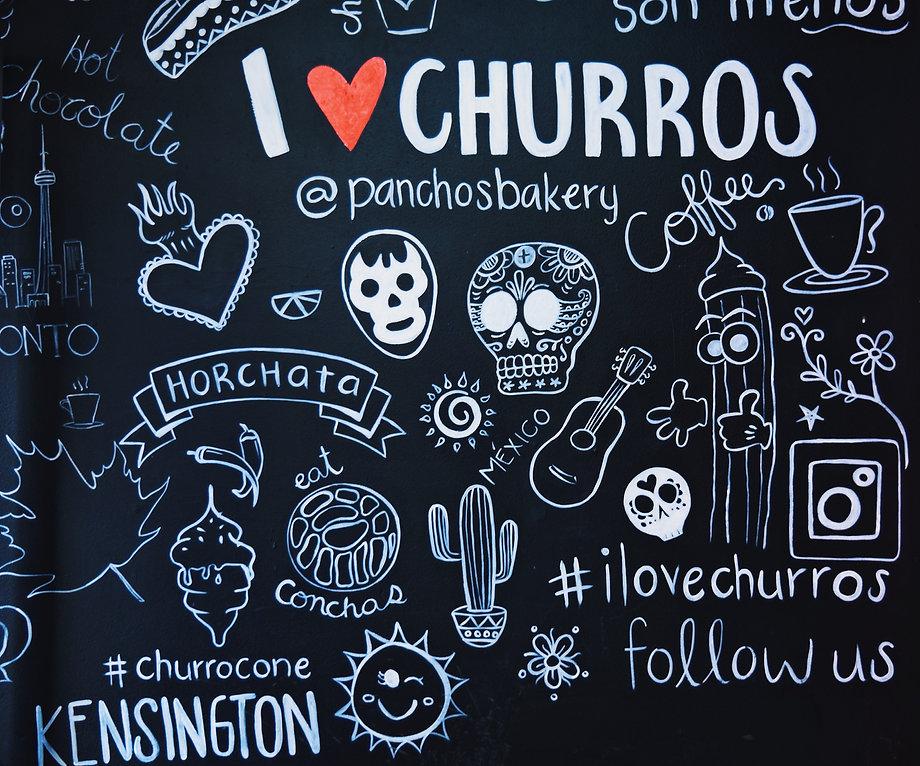 son menos
Hot
Chocolate
I ❤ CHURROS
@panchosbakery
Coffee
ONTO
HORCHATA
MEXICO
eat
Conchas
#ilovechurros
#churrocone
follow us
KENSINGTON